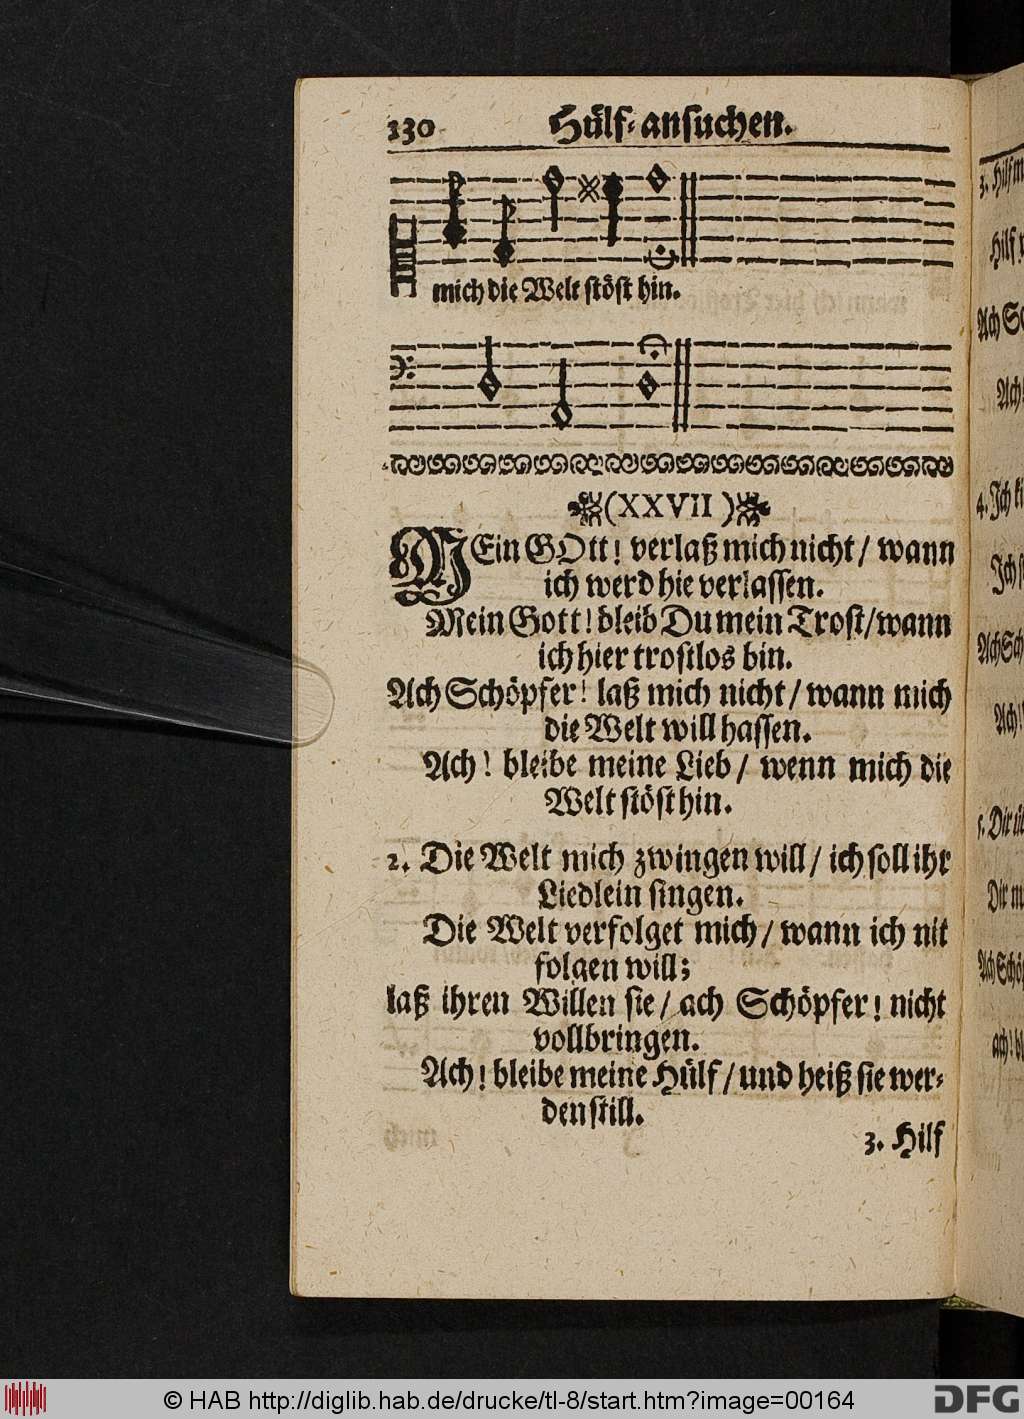 130 Hülf-ansuchen.
mich die Welt stöst hin.
(XXVII)
MEin GOtt! verlaß mich nicht/ wann
ich werd hie verlassen.
Mein Gott! bleib Du mein Trost/ wann
ich hier trostlos bin.
Ach Schöpfer! laß mich nicht/ wann mich
die Welt will hassen.
Ach! bleibe meine Lieb/ wenn mich die
Welt stöst hin.
2. Die Welt mich zwingen will/ ich soll ihr
Liedlein singen.
Die Welt verfolget mich/ wann ich nit
folgen will;
laß ihren Willen sie/ ach Schöpfer! nicht
vollbringen.
Ach! bleibe meine Hülf/ und heiß sie wer-
den still.
3. Hilf
3. Hilf
Hilf
Ach
Ach!
4. Ich
Ich
Ach Sch
Ach!
5. Dir
Dir
Ach Schö
ach!
© HAB http://diglib.hab.de/drucke/tl-8/start.htm?image=00164
DFG